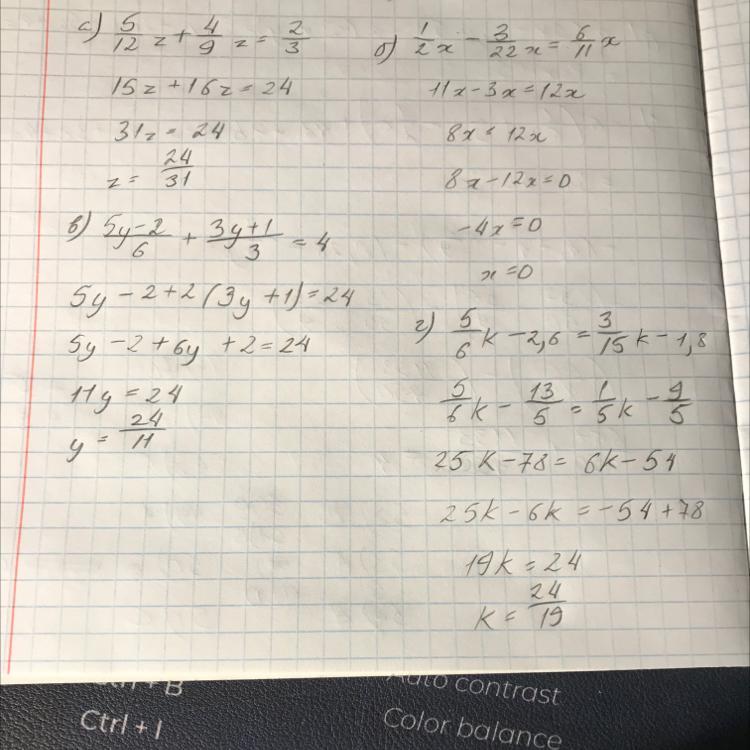 а) 5/12 z + 4/9 z = 2/3
15z + 16z = 24
31z = 24
z = 24/31
б) 1/2 x - 3/22 x = 6/11 x
11x - 3x = 12x
8x = 12x
8x - 12x = 0
-4x = 0
x = 0
в) 5y-2/6 + 3y+1/3 = 4
5y - 2 + 2(3y + 1) = 24
5y - 2 + 6y + 2 = 24
11y = 24
y = 24/11
г) 5/6 k - 2,6 = 3/15 k - 1,8
5/6 k - 13/5 = 1/5 k - 9/5
25k - 78 = 6k - 54
25k - 6k = -54 + 78
19k = 24
k = 24/19
Ctrl + B
Ctrl + I
Auto contrast
Color balance